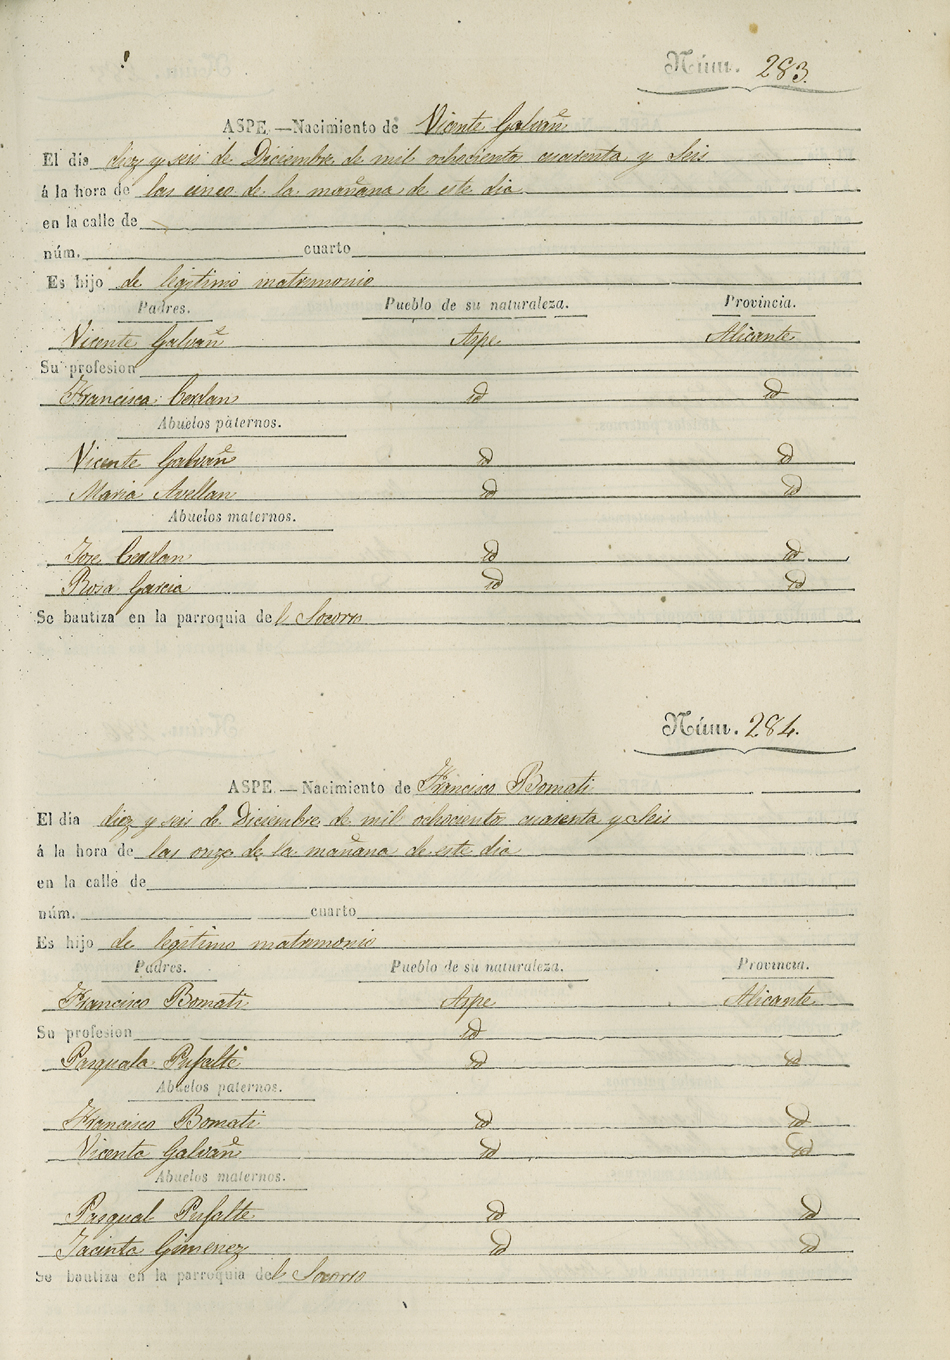 Núm. 283.
ASPE.—Nacimiento de Vicente Galvañ
El dia diez y seis de Diciembre de mil ochociento cuarenta y seis
á la hora de las cinco de la mañana de este dia
en la calle de
núm. cuarto
Es hijo de legitimo matrimonio
Padres. Pueblo de su naturaleza. Provincia.
Vicente Galvañ Aspe Alicante
Su profesion
Francisca Cerdan id id
Abuelos paternos.
Vicente Galvañ id id
Maria Avellan id id
Abuelos maternos.
Jose Cerdan id id
Rosa Garcia id id
Se bautiza en la parroquia del Socorro
Núm. 284.
ASPE.—Nacimiento de Francisco Bomati
El dia diez y seis de Diciembre de mil ochociento cuarenta y seis
á la hora de las onze de la mañana de este dia
en la calle de
núm. cuarto
Es hijo de legitimo matrimonio
Padres. Pueblo de su naturaleza. Provincia.
Francisco Bomati Aspe Alicante
Su profesion id
Pasquala Pujalte id id
Abuelos paternos.
Francisco Bomati id id
Vicenta Galvañ id id
Abuelos maternos.
Pasqual Pujalte id id
Jacinta Gimenez id id
Se bautiza en la parroquia del Socorro